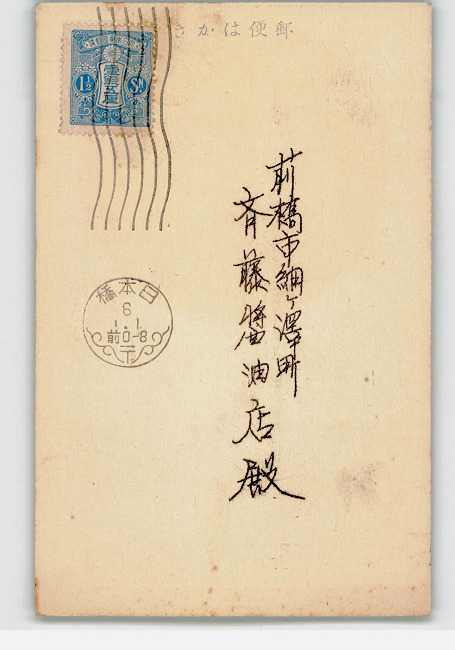 きかは便郵
壹錢五厘
1½ SN
前橋市細ヶ澤町
斉藤醬油店殿
橋本日
6
1.1
前0-8
〒